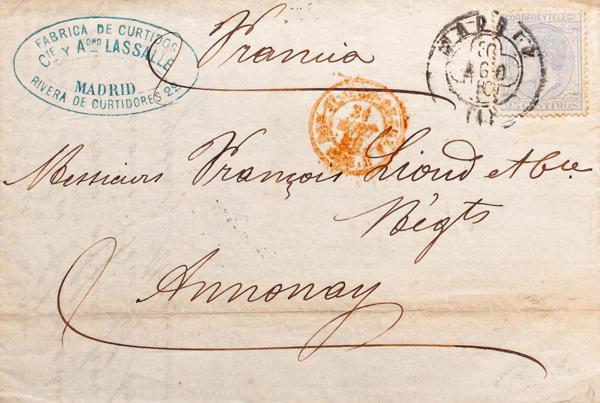 FABRICA DE CURTIDOS
Cte Y Adrd LASSALLE
MADRID
RIVERA DE CURTIDORES 25
Francia
MADRID
30
AGO
CORREOS Y TELEG
CENTIMOS
31
Messieurs François Lioud et Cie.
Négts
Annonay